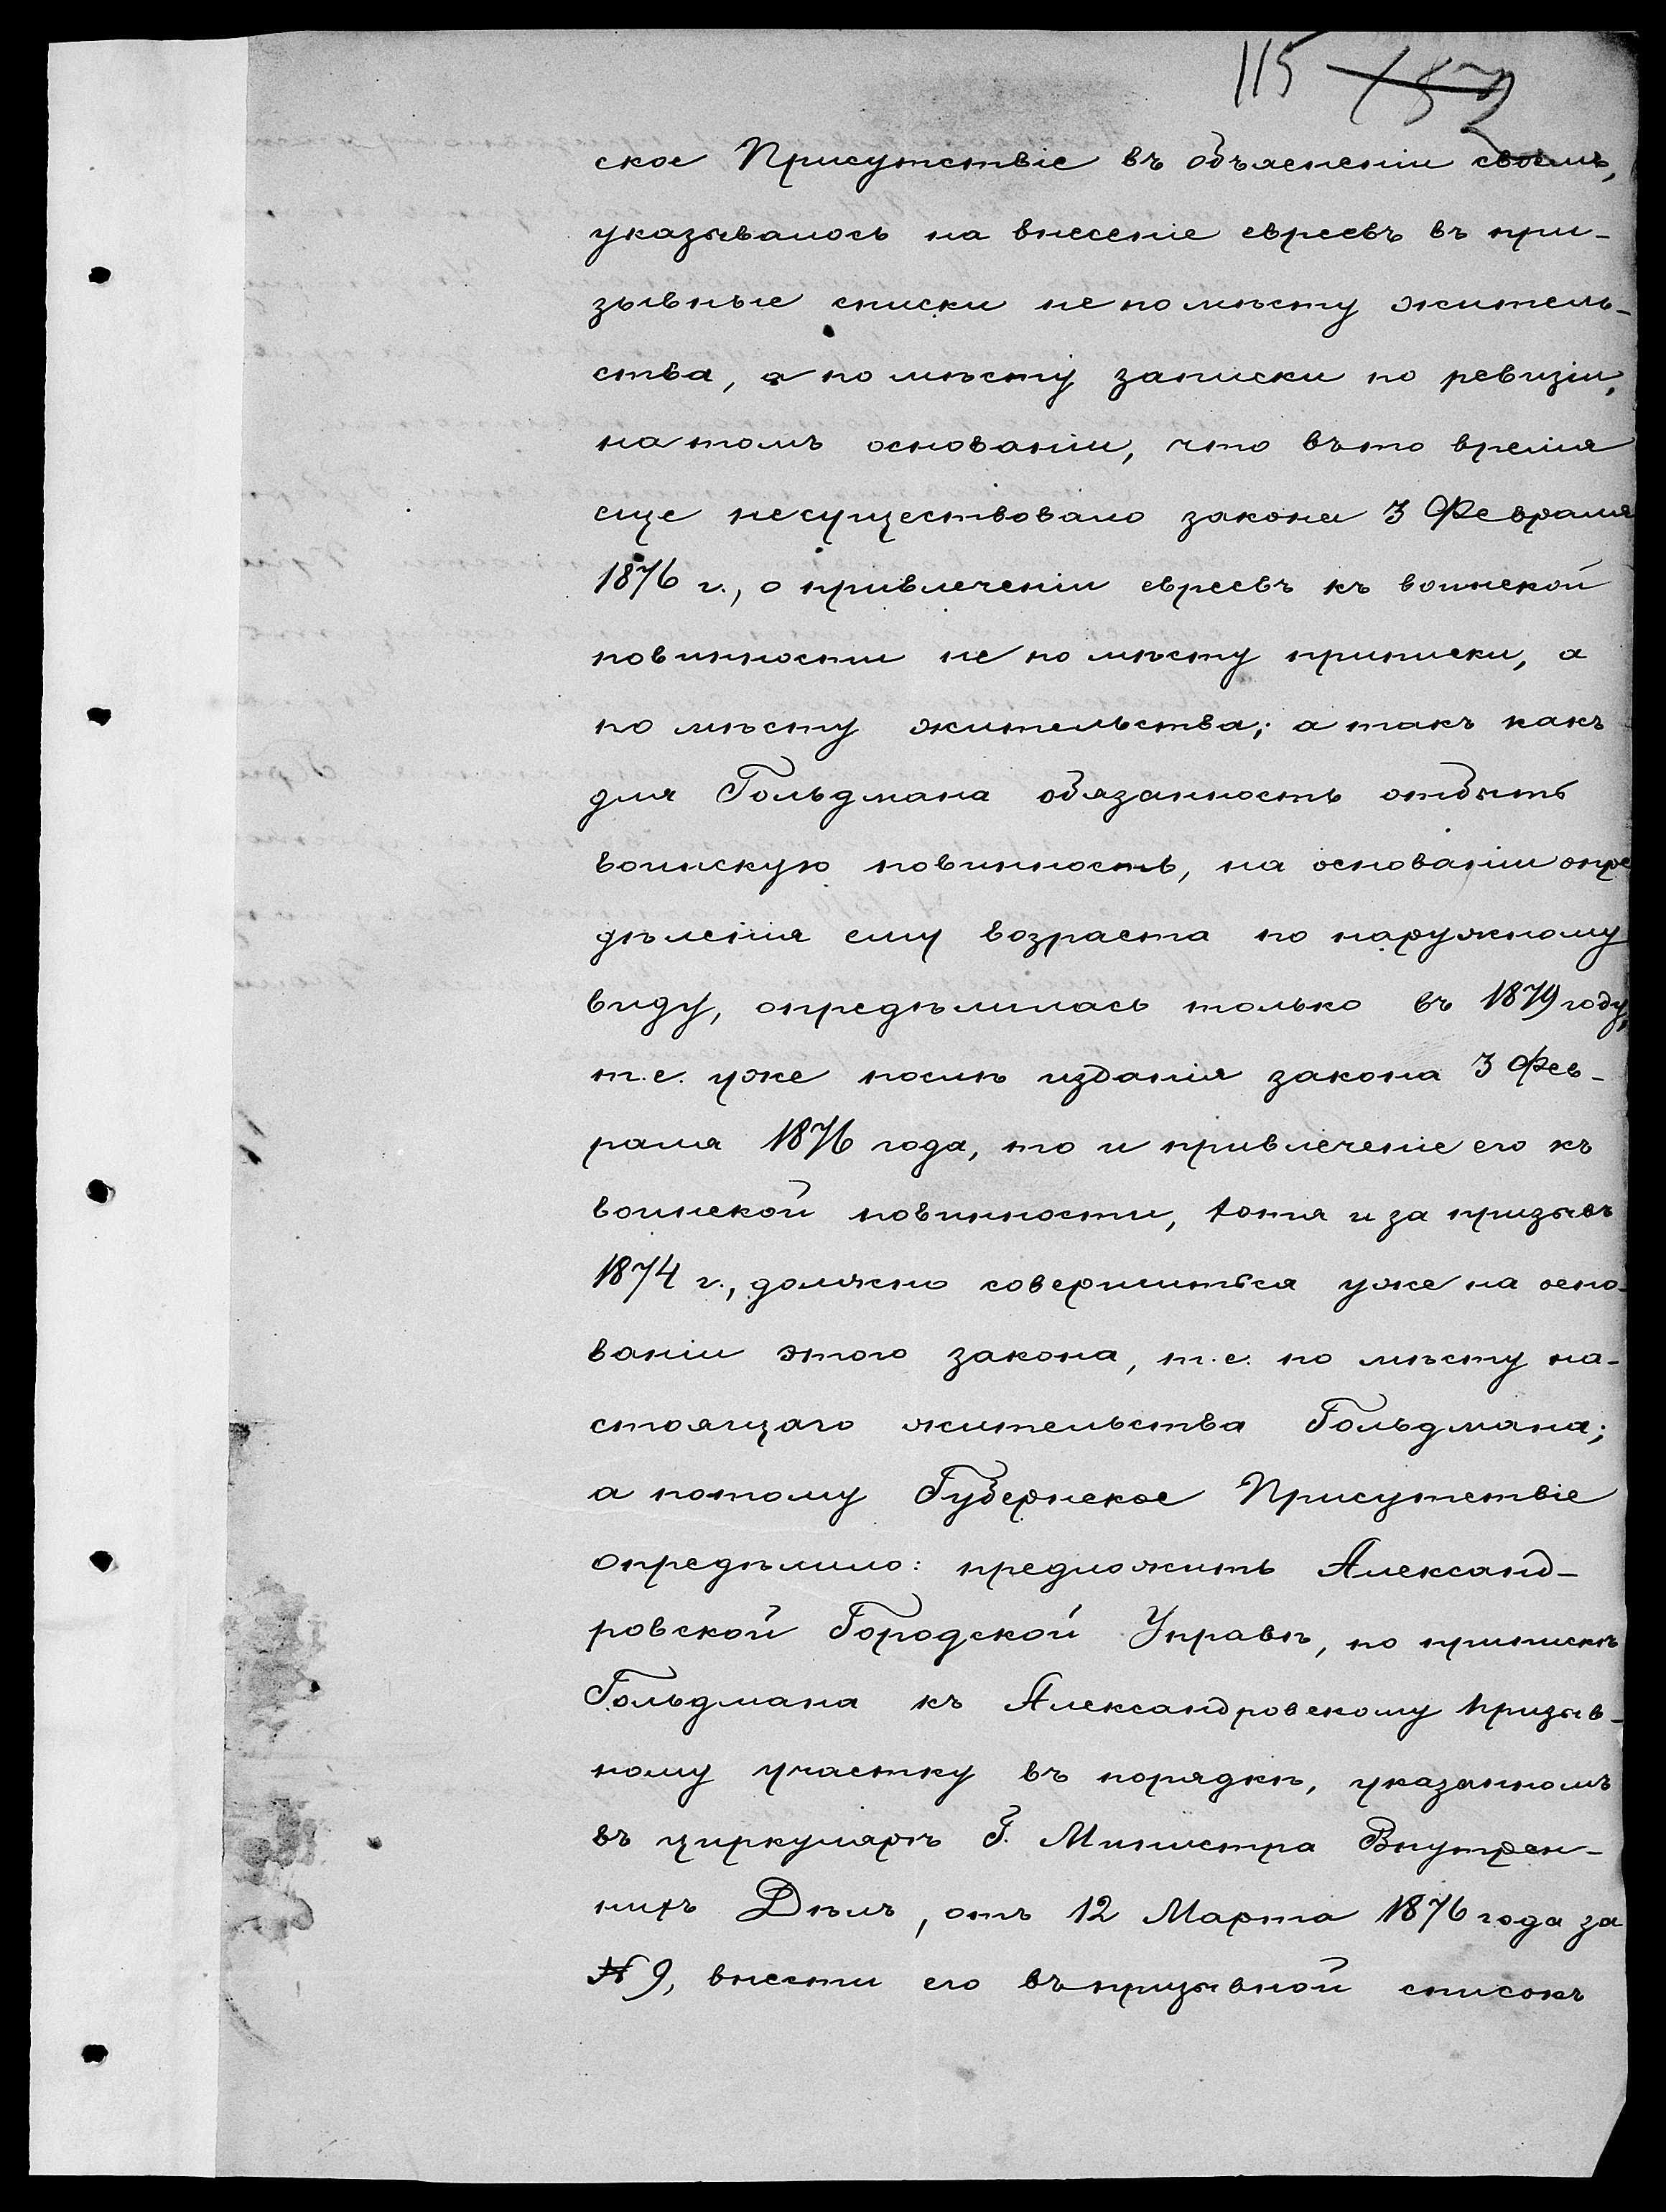 115 187
ское Присутствіе въ объясненіи своемъ,
указывалось на внесеніе евреевъ въ при-
зывные списки не по мѣсту житель-
ства, а по мѣсту записки по ревизіи,
на томъ основаніи, что въ то время
еще не существовало закона 3 Февраля
1876 г., о привлеченіи евреевъ къ воинской
повинности не по мѣсту приписки, а
по мѣсту жительства; а такъ какъ
для Гольдмана обязанность отбыть
воинскую повинность, на основаніи опре
дѣленія ему возраста по наружному
виду, опредѣлилась только въ 1879 году,
т.е. уже послѣ изданія закона 3 Фев-
раля 1876 года, то и привлеченіе его къ
воинской повинности, хотя и за призывъ
1874 г., должно совершиться уже на осно-
ваніи этого закона, т.е. по мѣсту на-
стоящаго жительства Гольдмана;
а потому Губернское Присутствіе
опредѣлило: предложить Александ-
ровской Городской Управѣ, по припискѣ
Гольдмана къ Александровскому призыв-
ному участку въ порядкѣ, указанномъ
въ циркулярѣ Г. Министра Внутрен-
нихъ Дѣлъ, отъ 12 Марта 1876 года за
№ 9, внести его въ призывной списокъ